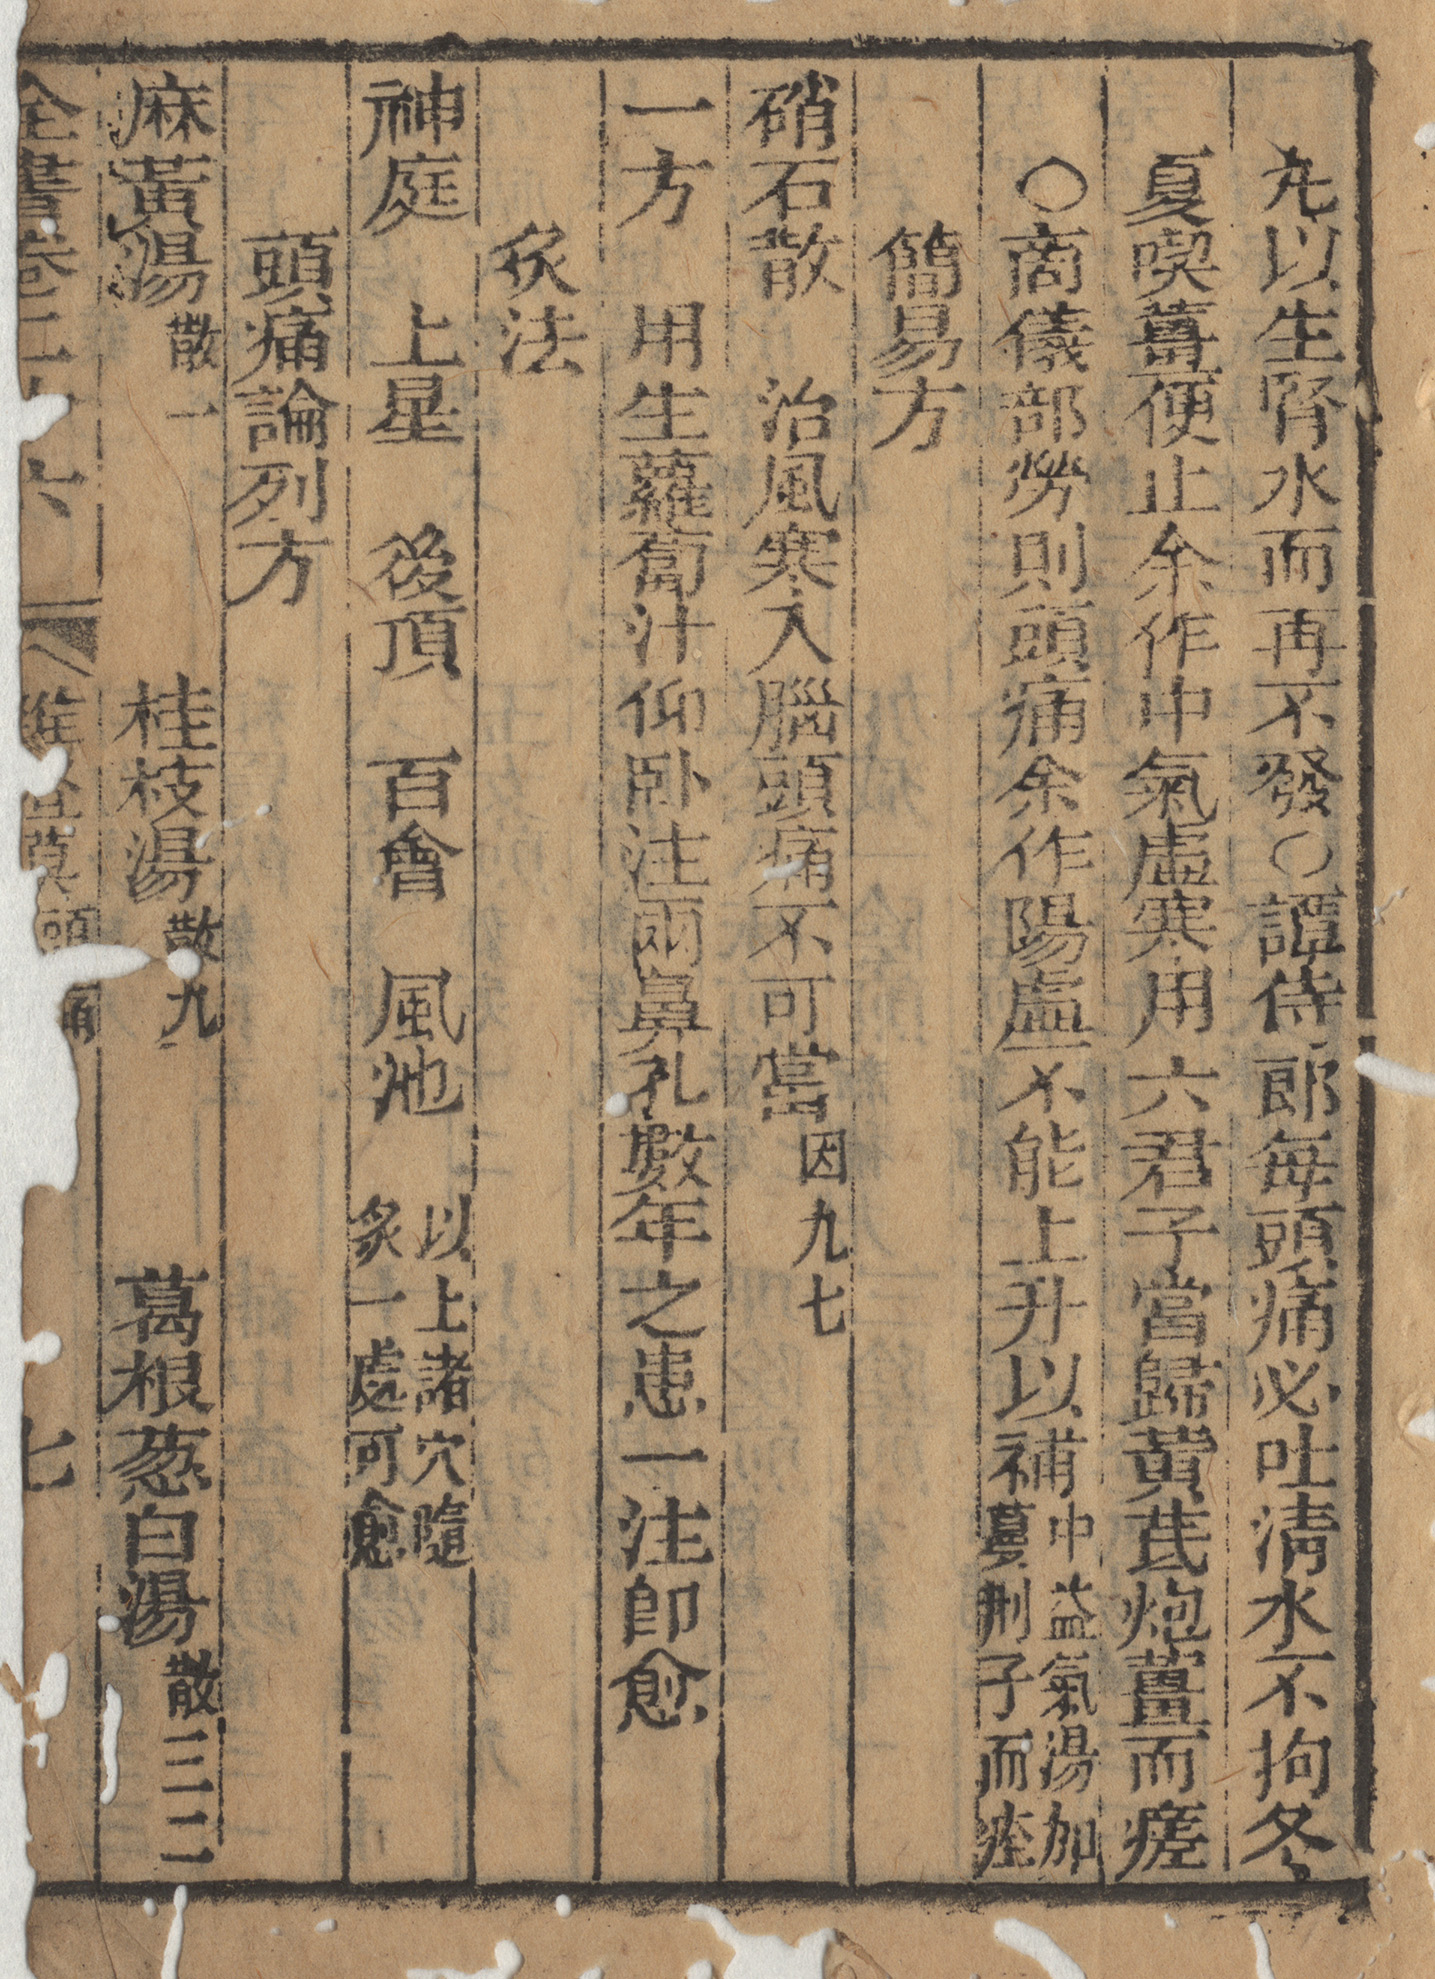 丸以生腎水而再不發〇譚侍郎每頭痛必吐清水不拘冬
夏喫薑便止余作中氣虛寒用六君子當歸黃茋炮薑而瘥
〇商儀部勞則頭痛余作陽虛不能上升以補中益氣湯加蔓荆子而痊
簡易方
硝石散　治風寒入腦頭痛不可當因九七
一方　用生蘿蔔汁仰卧注兩鼻孔數年之患一注即愈
灸法
神庭　上星　後頂　百會　風池　以上諸穴隨灸一處可愈
頭痛論列方
麻黃湯散一　桂枝湯散九　葛根葱白湯散三二
全書卷二十六　雜證謨　頭痛　七